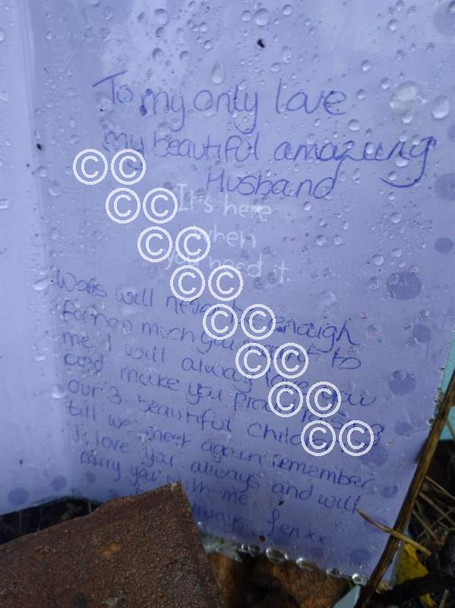 To my only love
my beautiful amazing
Husband
It's here
when
you need it
Words will never be enough
for how much you meant to
me I will always love you
and make you proud
our 3 beautiful children
till we meet again remember
I love you always and will
carry you with me
always Jen xx
© ©
© ©
© ©
© ©
© ©
© ©
© ©
© ©